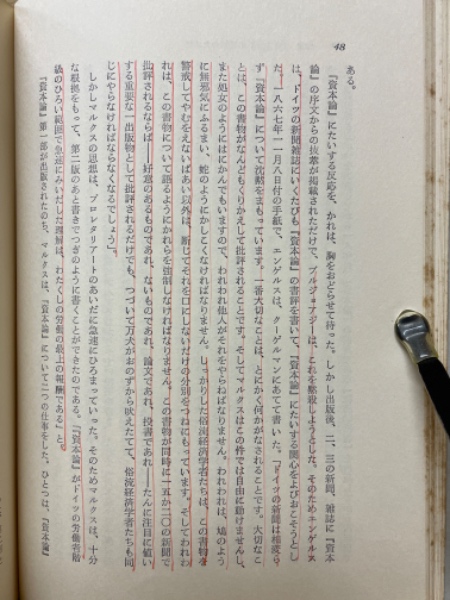 48
ある。
『資本論』にたいする反応を、かれは、胸をおどらせて待った。しかし出版後、二、三の新聞、雑誌に『資本
論』の序文からの抜萃が掲載されただけで、ブルジョアジーは、これを黙殺しようとした。そのためエンゲルス
は、ドイツの新聞雑誌にいくたびも『資本論』の書評を書いて、『資本論』にたいする関心をよびおこそうとし
た。一八六七年一一月八日付の手紙で、エンゲルスは、クーゲルマンにあてて書いた。「ドイツの新聞は相変ら
ず『資本論』について沈黙をまもっています。一番大切なことは、とにかく何かがなされることです。大切なこ
とは、この書物がなんどもくりかえして批評されることです。そしてマルクスはこの件では自由に動けませんし、
また処女のようにはにかんでもいますので、われわれ他人がそれをやらねばなりません。われわれは、鳩のよう
に無邪気にふるまい、蛇のようにかしこくなければなりません。しっかりした俗流経済学者たちは、この書物を
警戒してやむをえないばあい以外は、断じてそれを口にしないだけの分別をつねにもっています。そしてわれわ
れは、この書物について語るようにかれらを強制しなければなりません。この書物が同時に一五か二〇の新聞で
批評されるならば――好意のあるものであれ、ないものであれ、論文であれ、投書であれ――たんに注目に値い
する重要な一出版物として批評されるだけでも、つづいて万犬がおのずから吠えたてて、俗流経済学者たちも同
じにやらなければならなくなるでしょう」。
しかしマルクスの思想は、プロレタリアートのあいだに急速にひろまっていった。そのためマルクスは、十分
な根拠をもって、第二版のあと書きでつぎのように書くことができたのである。「『資本論』がドイツの労働者階
級のひろい範囲で急速にみいだした理解は、わたくしの労働の最上の報酬である」と。
『資本論』第一部が出版されたのち、マルクスは、『資本論』について二つの仕事をした。ひとつは、『資本論』